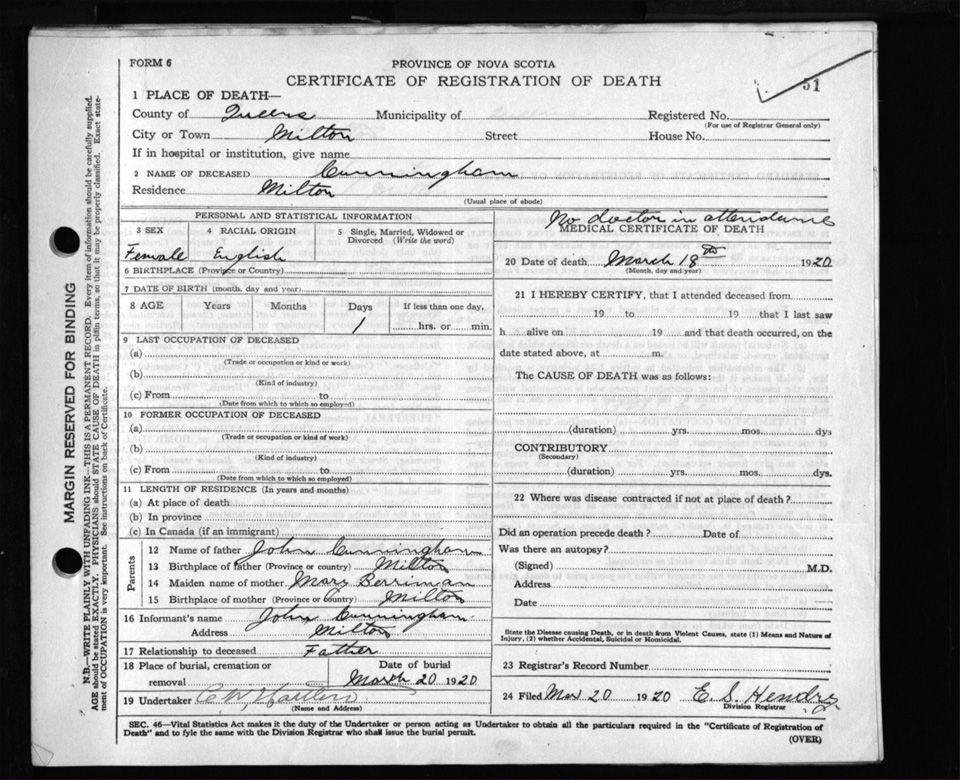 FORM 6
PROVINCE OF NOVA SCOTIA
CERTIFICATE OF REGISTRATION OF DEATH
51
1 PLACE OF DEATH—
County of Queens Municipality of Registered No.
(For use of Registrar General only)
City or Town Milton Street House No.
If in hospital or institution, give name
2 NAME OF DECEASED Cunningham
Residence Milton
(Usual place of abode)
PERSONAL AND STATISTICAL INFORMATION
3 SEX 4 RACIAL ORIGIN 5 Single, Married, Widowed or Divorced (Write the word)
Female English
6 BIRTHPLACE (Province or Country)
7 DATE OF BIRTH (month, day and year)
8 AGE Years Months Days If less than one day,
1 hrs. or min.
9 LAST OCCUPATION OF DECEASED
(a)
(Trade or occupation or kind or work)
(b)
(Kind of industry)
(c) From to
(Date from which to which so employed)
10 FORMER OCCUPATION OF DECEASED
(a)
(Trade or occupation or kind of work)
(b)
(Kind of industry)
(c) From to
(Date from which to which so employed)
11 LENGTH OF RESIDENCE (In years and months)
(a) At place of death
(b) In province
(c) In Canada (if an immigrant)
Parents
12 Name of father John Cunningham
13 Birthplace of father (Province or country) Milton
14 Maiden name of mother Mary Berriman
15 Birthplace of mother (Province or country) Milton
16 Informant's name John Cunningham
Address Milton
17 Relationship to deceased Father
18 Place of burial, cremation or removal Date of burial
March 20 1920
19 Undertaker C W
(Name and Address)
No doctor in attendance
MEDICAL CERTIFICATE OF DEATH
20 Date of death March 18th 1920
(Month, day and year)
21 I HEREBY CERTIFY, that I attended deceased from
19 to 19 that I last saw
h alive on 19 and that death occurred, on the
date stated above, at m.
The CAUSE OF DEATH was as follows:
(duration) yrs. mos. dys
CONTRIBUTORY
(Secondary)
(duration) yrs. mos. dys.
22 Where was disease contracted if not at place of death?
Did an operation precede death? Date of
Was there an autopsy?
(Signed) M.D.
Address
Date
State the Disease causing Death, or in death from Violent Causes, state (1) Means and Nature of
Injury, (2) whether Accidental, Suicidal or Homicidal.
23 Registrar's Record Number
24 Filed Mar 20 1920 E. S. Hendry
Division Registrar
SEC. 46—Vital Statistics Act makes it the duty of the Undertaker or person acting as Undertaker to obtain all the particulars required in the "Certificate of Registration of
Death" and to fyle the same with the Division Registrar who shall issue the burial permit.
(OVER)
MARGIN RESERVED FOR BINDING
N.B.—WRITE PLAINLY WITH UNFADING INK—THIS IS A PERMANENT RECORD. Every item of information should be carefully supplied.
AGE should be stated EXACTLY. PHYSICIANS should STATE CAUSE OF DEATH in plain terms, so that it may be properly classified. Exact state-
ment of OCCUPATION is very important. See instructions on back of Certificate.